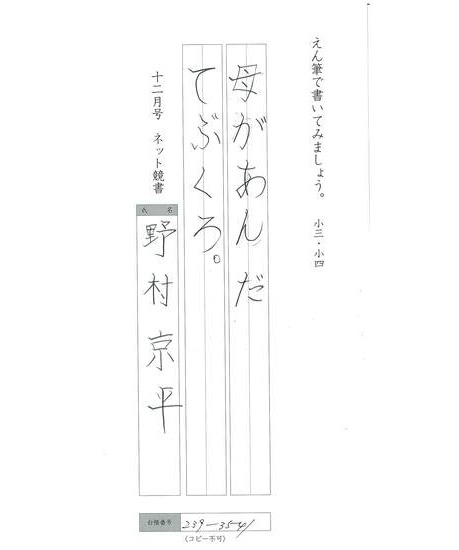 えん筆で書いてみましょう。 小三・小四
母があんだ
てぶくろ。
十二月号 ネット競書
氏名
野村京平
台帳番号 239-3541
(コピー不可)